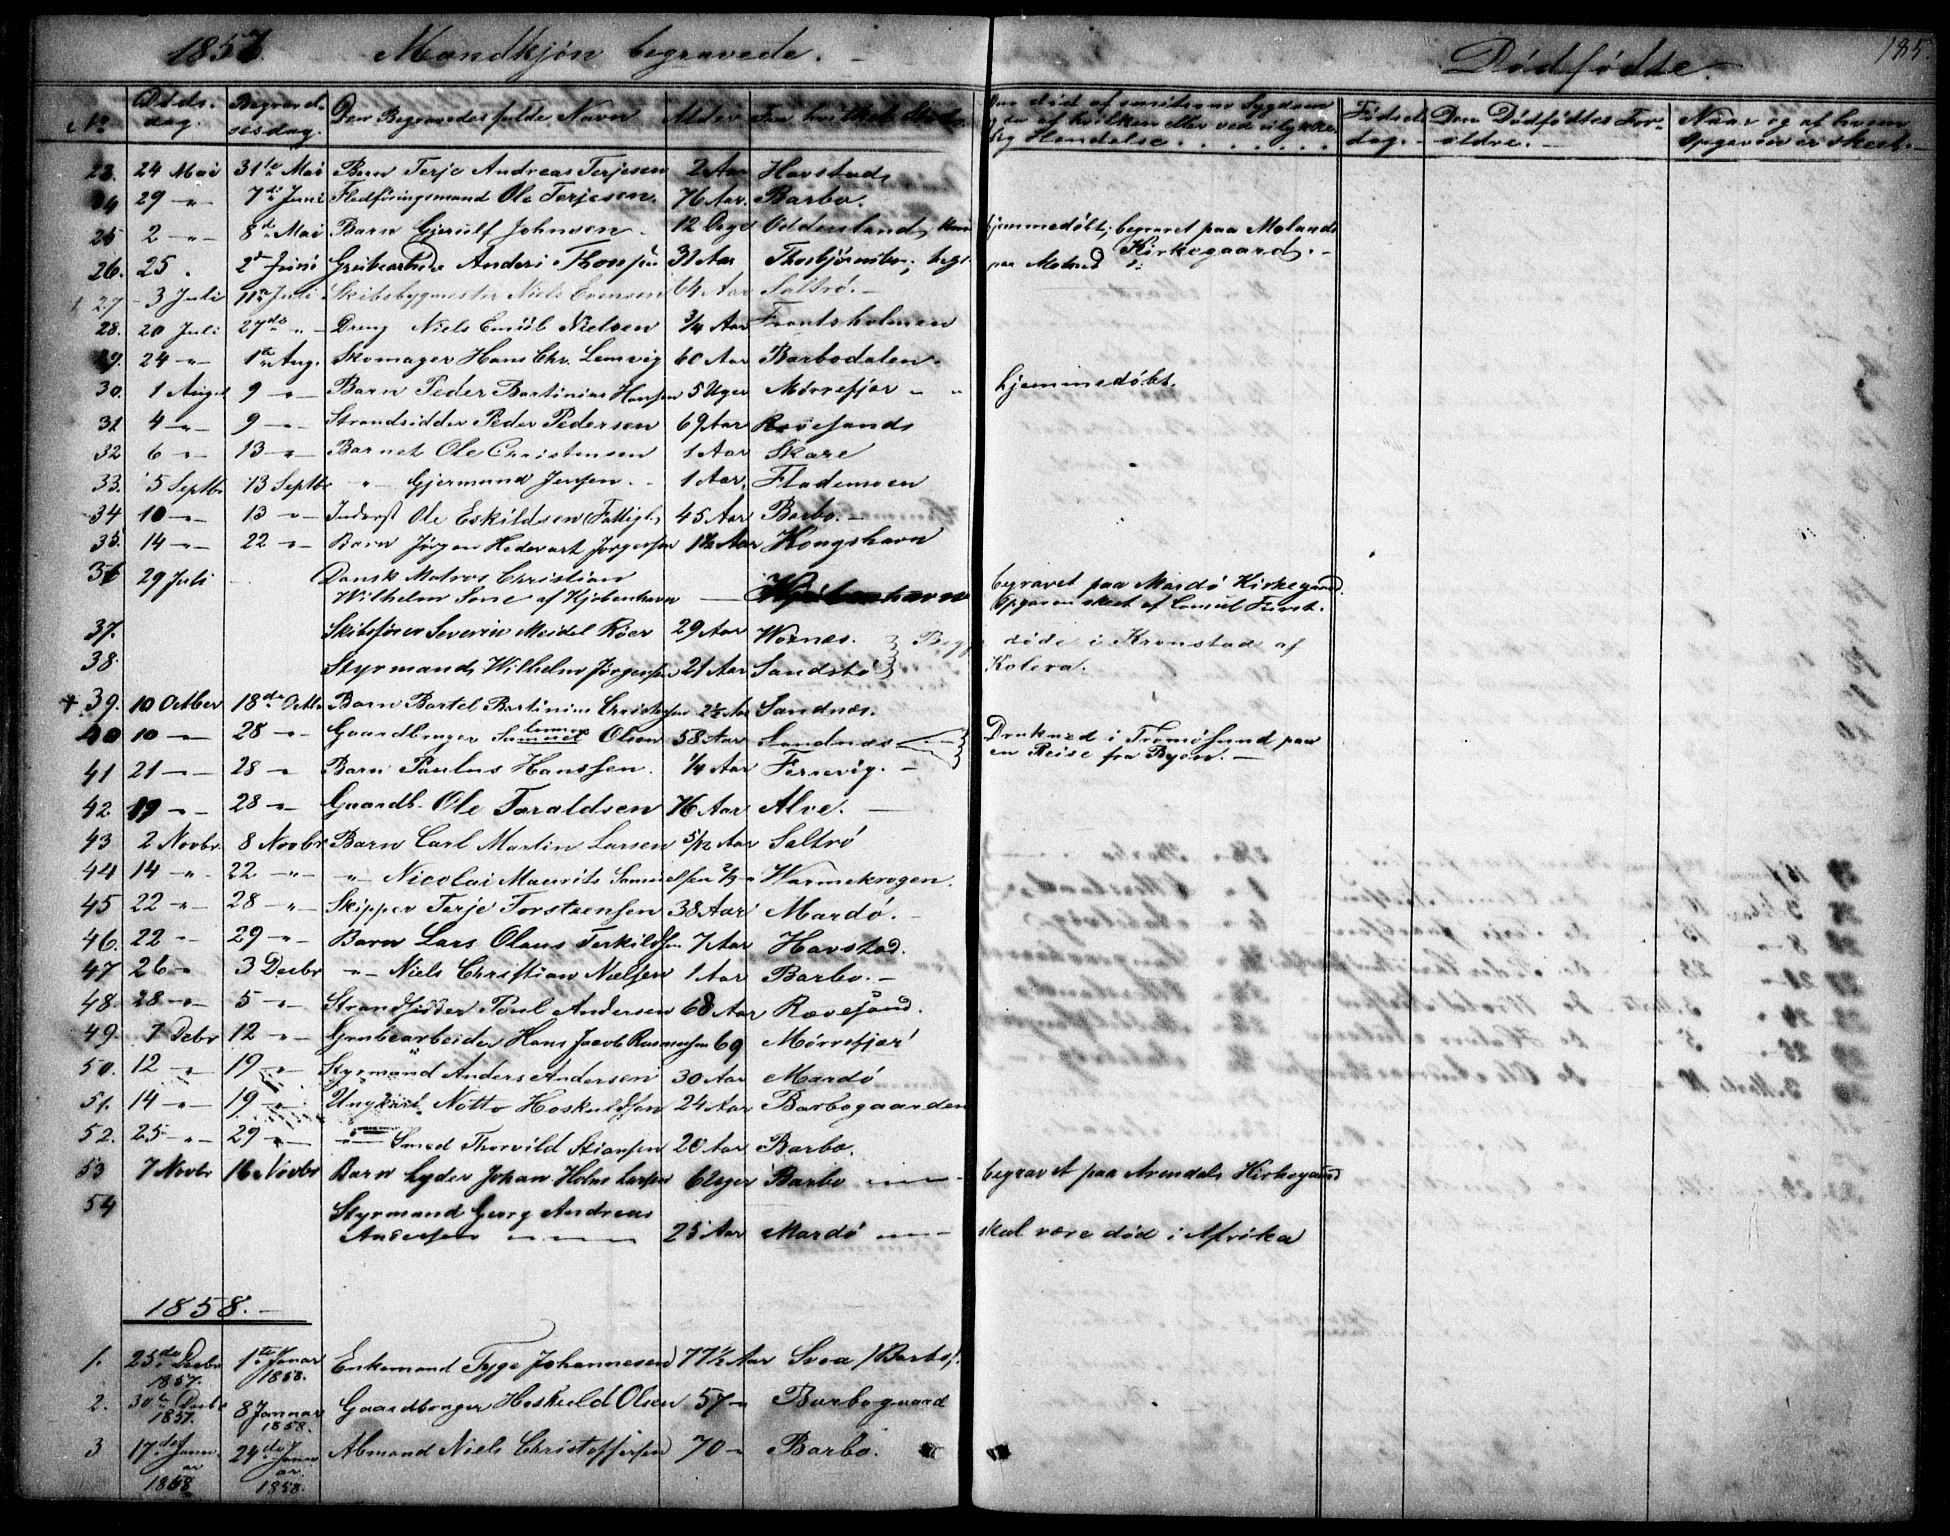 1857. Mandkjøn begravede. Dødfødte. 185.
No. Døds-dag. Begravel-sesdag. Den Begravedes fulde Navn Alder Fra hvilket Sted. Om død af smitsom Sygdom og da af hvilken eller ved ulykke-lig Hendelse Fødsels-dag. Den Dødfødtes For-eldre. Naar og af hvem Opgaven er skeet.
23. 24 Mai 31te Mai Barn Terje Andreas Terjesen 2 Aar Havstad
24 29 " 7de Juni Fledføringsmand Ole Terjesen. 76 Aar. Barbo.
25 2 " 8de Mai Barn Gjerulf Johnsen. 12 Dage Oddersland, hjemmedøbt, begravet paa Molands Kirkegaard.
26. 25 . 2de Juni Grubearbeider Anders 31 Aar
27 3 Juli 11te Juli Skibsbygmester Niels Evensen 64 Aar Saltrø.
28. 20 Juli 27de " Dreng Niels Emiil Nielsen 3/4 Aar Frantsholmen
29. 24 " 1te Aug. Skomager Hans Chr. Lemvig 60 Aar Barbodalen.
30. 1 August 9 " Barn Peder Bertinius Hansen 5 Uger Mørrefjær " " hjemmedøbt.
31 4 " 9 " Strandsidder Peder Pedersen 69 Aar Revesand
32 6 " 13 " Barnet Ole Christensen 1 Aar Skare
33. 5 Septbr 13 Septbr " Gjermund Jensen. 1 Aar. Flademoen
34 10 " 13 " Inderst Ole Eskildsen (Fattigl. 45 Aar Barbo.
35. 14 " 22 " Barn Jørgen Jørgensen 1½ Aar Kongshavn
36 29 Juli Dansk Matros Christian
Wilhelm af Kjøbenhavn — Kjøbenhavn begravet paa Mardø Kirkegaard. Opgaven skeet af Consul
37. Skibsfører Severin Meidel Röer 29 Aar Woxnæs. } Begge døde i Kronstad af
38. Styrmand Wilhelm Jørgensen 21 Aar Sandstø } Kolera.
+ 39. 10 Octber 18de Octbr Barn Bertel Bertinius Christensen 2½ Aar Sandnæs.
40 10 " 28 " Gaardbruger Samuel Olsen 58 Aar Sandnæs Drukned i Tromøsund paa en Reise fra Byen.
41 21 " 28 " Barn Paulus Hanssen. 1/4 Aar Fersevig.
42. 19 " 28 " Gaardb. Ole Taraldsen 76 Aar Alve.
43 2 Novbr. 8 Novbr Barn Carl Martin Larsen 5/12 Aar Saltrø
44 14 " 22 " " Nicolai Maurits Samuelsen Warmekrogen.
45 22 " 28 " Skipper Terje Torstensen 38 Aar Mardø.
46. 22 " 29 " Barn Lars Olaus Terkildsen 7 Aar Havstad.
47 26 " 3 Decbr " Niels Christian Nielsen 1 Aar Barbo.
48. 28 " 5 " Strandsidder Poul Andersen 68 Aar Rævesand.
49. 7 Debr 12 " Grubearbeider Hans Jacob Rasmussen 69 Mørrefjær
50. 12 " 19 " Styrmand Anders Andersen 30 Aar Mardø
51. 14 " 19 " Ungkarl Notto Hoskuldsen 24 Aar Barbogaarden
52. 25 " 29 " " Smed Thorvild Stiansen 20 Aar Barbo.
53 7 Novbr 16 Novbr Barn Lyder Johan Holm Larsen 6 Uger Barbo begravet paa Arendals Kirkegaard
54 Styrmand Georg Andreas
Andersen 25 Aar Mardø skal være død i Afrika
1858.
1. 25de Decbr 1857. 1te Januar 1858. Enkemand Tyge Johannesen 77½ Aar Svea /Barbo/.
2. 30te Decbr 1857. 8 Januar 1858. Gaardbruger Hoskuld Olsen 57 " Barbogaard
3 17de Januar 1858 24de Januar. 1858. Abmand Niels Christoffersen 70 " Barbo.